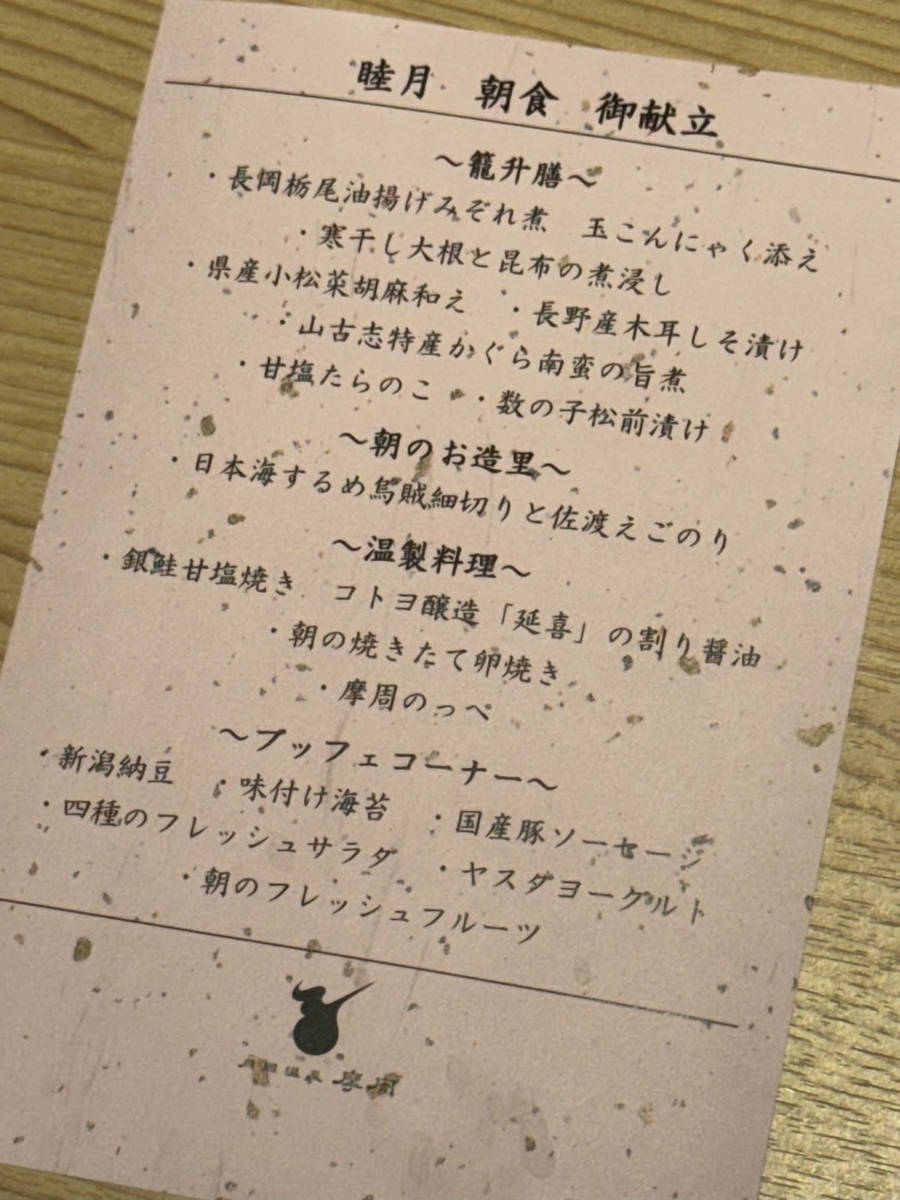 睦月　朝食　御献立
～籠升膳～
・長岡栃尾油揚げみぞれ煮　玉こんにゃく添え
・寒干し大根と昆布の煮浸し
・県産小松菜胡麻和え　・長野産木耳しそ漬け
・山古志特産かぐら南蛮の旨煮
・甘塩たらのこ　・数の子松前漬け
～朝のお造里～
・日本海するめ烏賊細切りと佐渡えごのり
～温製料理～
・銀鮭甘塩焼き　コトヨ醸造「延喜」の割り醤油
・朝の焼きたて卵焼き
・摩周のっぺ
～ブッフェコーナー～
・新潟納豆　・味付け海苔　・国産豚ソーセージ
・四種のフレッシュサラダ　・ヤスダヨーグルト
・朝のフレッシュフルーツ
温泉 摩周